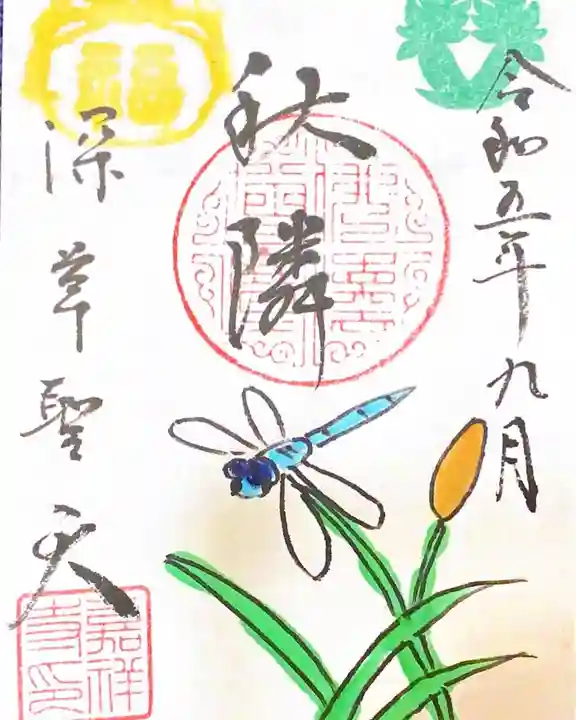 令和五年九月
秋隣
深草聖天
嘉祥寺印